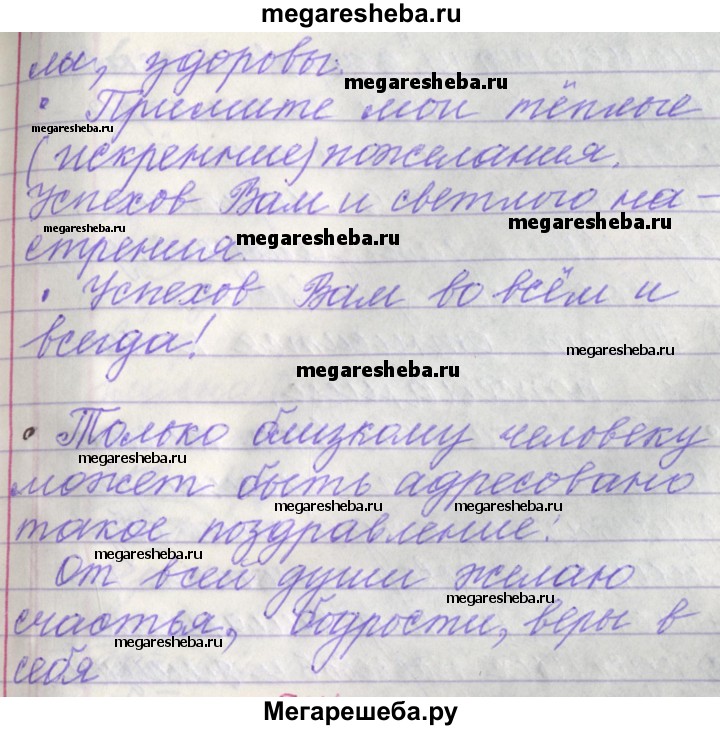 megaresheba.ru
лы, здоровы.
megaresheba.ru
• Примите мои тёплые
megaresheba.ru
(искренние) пожелания.
Успехов Вам и светлого на-
megaresheba.ru
megaresheba.ru
megaresheba.ru
строения.
• Успехов Вам во всём и
всегда!
megaresheba.ru
megaresheba.ru
• Только близкому человеку
megaresheba.ru
может быть адресовано
megaresheba.ru
megaresheba.ru
такое поздравление:
megaresheba.ru
От всей души желаю
megaresheba.ru
счастья, бодрости, веры в
megaresheba.ru
себя
Мегарешеба.ру